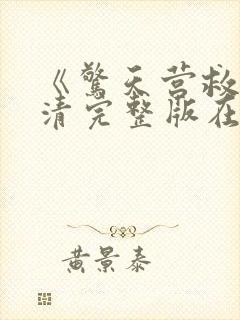 《驚天营救
清完整版在
黄景泰